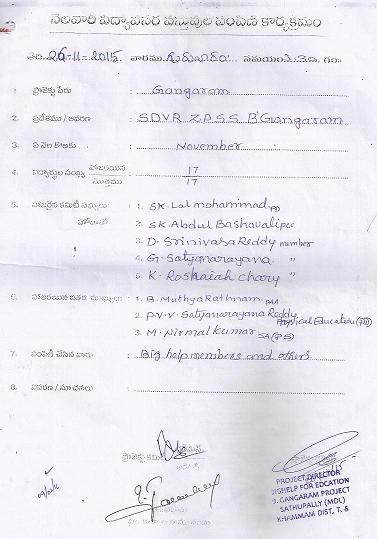 నెలవారి విద్యావసర వస్తువుల పంపిణీ కార్యక్రమం
తేది. 26-11-2015 వారము గురువారం సమయం 3.00 గం
1. ప్రాజెక్టు పేరు : Gangaram
2. ప్రదేశము / ఆవరణ : S.D.V.R Z.P.S.S B'Gangaram
3. ఏ నెల కొరకు : November
4. విద్యార్థుల సంఖ్య హాజరయిన / మొత్తము : 17/17
5. హాజరైన కమిటీ సభ్యులు : 1. SK. Lal mohammad PD
హోదాతో 2. SK. Abdul Bashavali
3. D. Srinivasa Reddy member
4. G. Satyanarayana. "
5. K. Roshaiah chary "
6. హాజరయిన ఇతర ముఖ్యులు : 1. B. Muthya Rathnam
2. P.V.V. Satyanarayana Reddy Physical Education
3. M. Nirmal Kumar SA(PS)
7. పంపిణీ చేసిన వారు : Big help members and others
8. వివరణ / సూచనలు :
ప్రాజెక్టు కమిటీ
PROJECT DIRECTOR
BIGHELP FOR EDCATION
B. GANGARAM PROJECT
SATHUPALLY (MDL)
KHAMMAM DIST, T. S